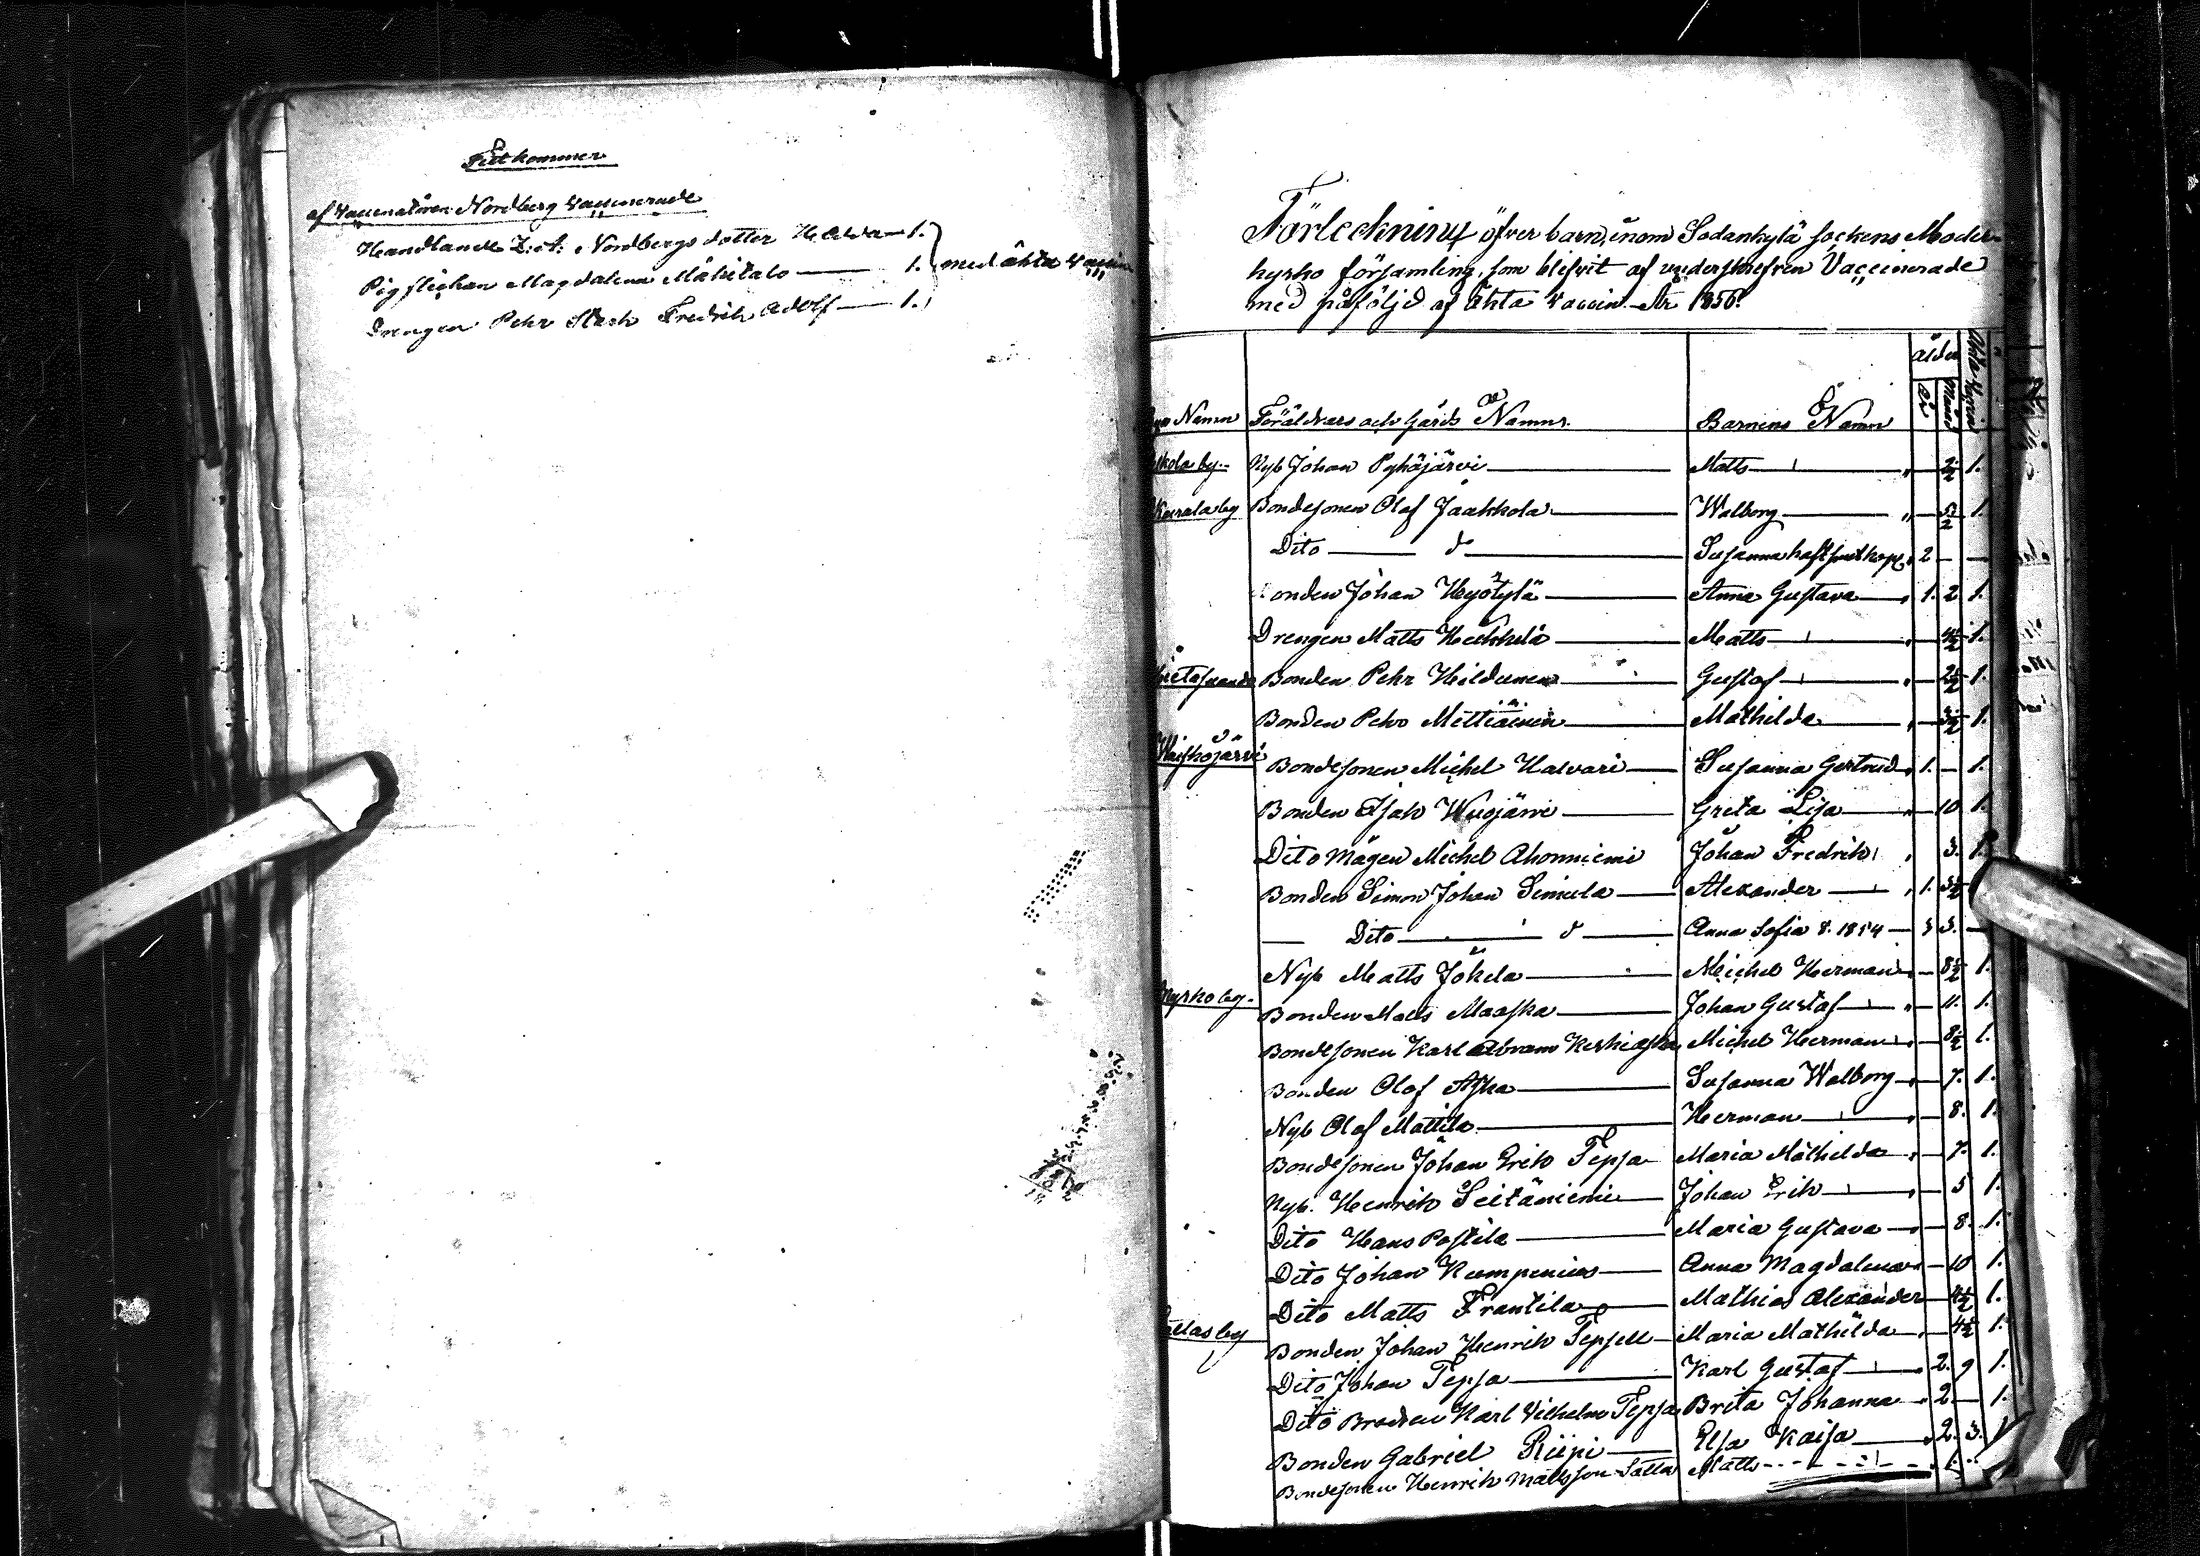 Tillkommer
af Vaccinatören Nordberg Vaccinerade
Handlande Z. A. Nordbergs dotter Hilda — 1.
Pigflickan Magdalena Mäkitalo — 1. med ähta vaccin
Drengen Pehr Stark Fredrik Adolf — 1.
Förteckning öfver barn, inom Sodankylä sockens Moder-
kyrko församling, som blifvit af underskrefven Vaccinerade
med påföljd af ähta vaccin År 1856.
Ålder
År Månad
Namn Föräldrars och Gårds Namn. Barnens Namn
by Nyb Johan Pyhäjärvi — Matts — " — 2½ 1.
Kierala by Bondesonen Olof Jaakkola — Walborg — " — 5½ 1.
Dito — d — Susanna haft " 2 — —
Bonden Johan Hyötylä — Anna Gustava — " 1. 2 1.
Drengen Matts Heikkilä — Matts — " — 4½ 1.
Bonden Pehr Hildunen — Gustaf — " — 2½ 1.
Bonden Petter Mettiäinen — Mathilda — " — 3½ 1.
Waiskojärvi
Bondesonen Michel Halvari — Susanna Gertrud " 1. — 1.
Bonden Isak Wuojärvi — Greta Lisa — " — 10 1.
Dito Mågen Michel Ahonniemi Johan Fredrik " 3. 1.
Bonden Simon Johan Siirula — Alexander — " 1. 3½
— Dito — d — Anna Sofia 8. 1854 — 3.
Nyb Matts Jokela — Michel Herman — 8½ 1.
Kyrkoby
Bonden Mats Maaska — Johan Gustaf — " — 11. 1.
Bondesonen Karl Abram Keskiaska Michel Herman — 8½ 1.
Bonden Olof Aska — Susanna Walborg — " — 7. 1.
Nyb Olof Mattila — Herman — " — 8. 1.
Bondesonen Johan Erik Tepsa — Maria Mathilda — " — 7. 1.
Nyb. Henrik Seitäniemi — Johan Erik — " — 5 1.
Dito Hans Postila — Maria Gustava — — 8. 1.
Dito Johan Kumpenius — Anna Magdalena — 10 1.
Dito Matts Frantila — Mathias Alexander — 4½ 1.
by
Bonden Johan Henrik Tepsell — Maria Mathilda — " — 4½ 1.
Dito Johan Tepsa — Karl Gustaf — " 2. 9 1.
Dito Brodren Karl Vilhelm Tepsa Brita Johanna — " 2 — 1.
Bonden Gabriel Riipi — Elsa Kaisa — " 2. 3. 1
Bondesonen Henrik Mattsson Satta Matts — — — " 1.